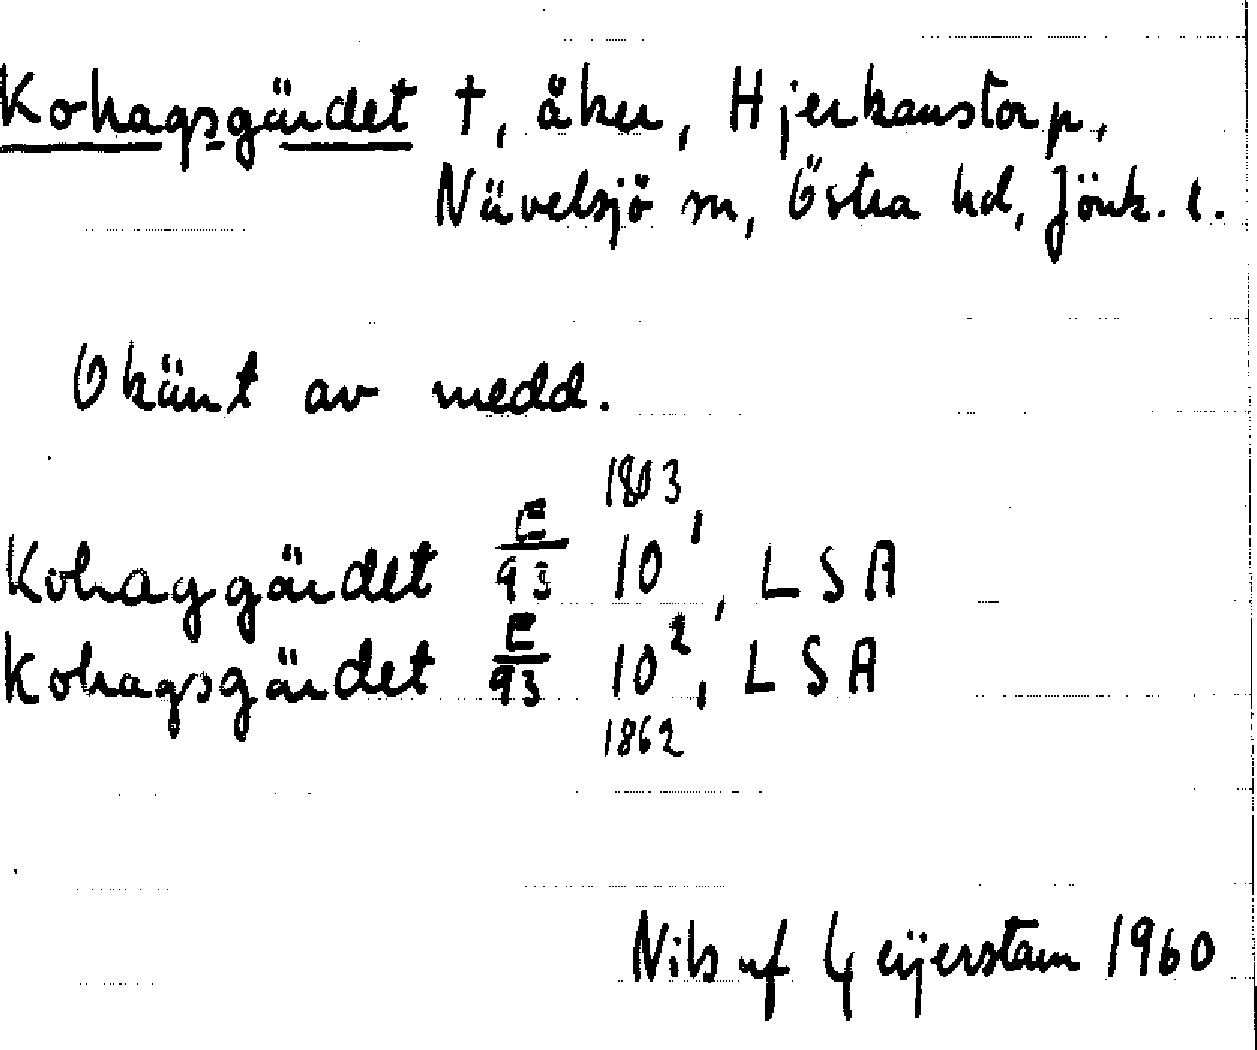 Kohagsgärdet †, åker, Hjerkanstorp,
Nävelsjö sn, Östra hd, Jönk. l.
Okänt av medd.
1803
Kohaggärdet E/93 10¹, LSA
Kohagsgärdet E/93 10², LSA
1862
Nils uf Geijerstam 1960